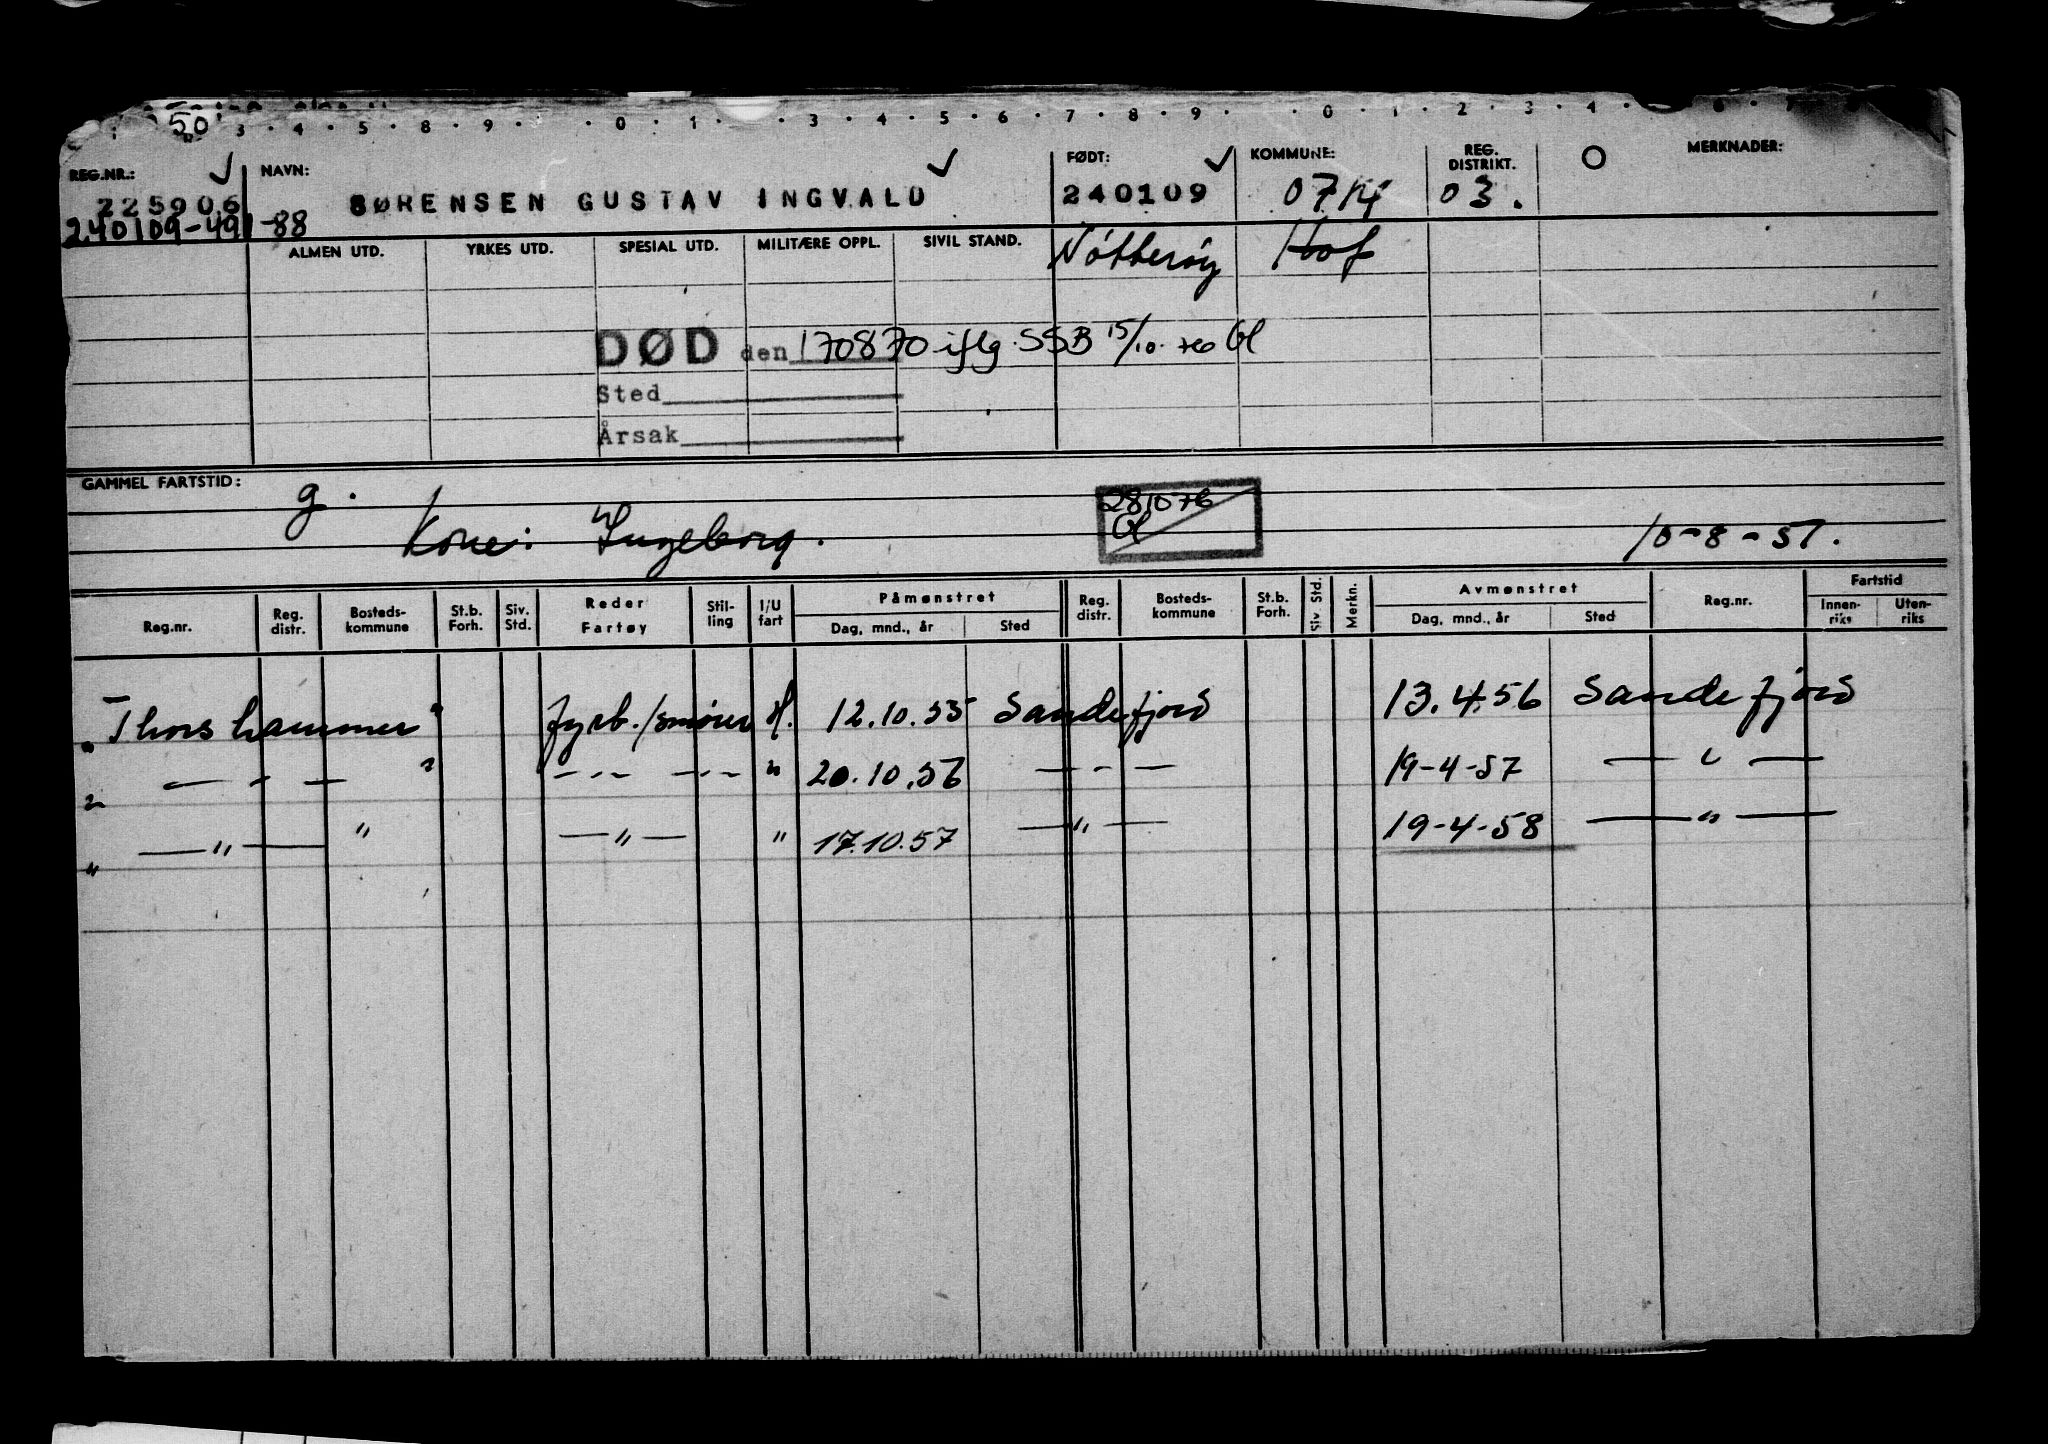 50
3 · 4 · 5 · 8 · 9 · · 0 · 1 · 3 · 4 · 5 · 6 · 7 · 8 · 9 · · 0 · 1 · 2 · 3 · 4 ·
REG.NR.: NAVN: FØDT: KOMMUNE: REG. DISTRIKT. O MERKNADER:
225906 SØRENSEN GUSTAV INGVALD 240109 0714 03.
240109-491-88
ALMEN UTD. YRKES UTD. SPESIAL UTD. MILITÆRE OPPL. SIVIL STAND. Nötteröy Hof
DØD den 170870 iflg. SSB 15/10.76 Gl
Sted
Årsak
GAMMEL FARTSTID: g. 281076
Kone: Ingeborg. Gl 10-8-57.
Reg.nr. Reg. distr. Bosteds-kommune St.b. Forh. Siv. Std. Reder Fartøy Stil-ling I/U fart Påmønstret Dag, mnd., år Sted Reg. distr. Bosteds-kommune St.b. Forh. Siv. Std. Merkn. Avmønstret Dag, mnd., år Sted Reg.nr. Fartstid Innen-riks Uten-riks
"Thorshammer" fyrb./smører H. 12.10.55 Sandefjord 13.4.56 Sandefjord
" — - — " — - — — - — " 20.10.56 — - — 19-4-57 — " —
" — " — " — " — " 17.10.57 — " — 19-4-58 — " —